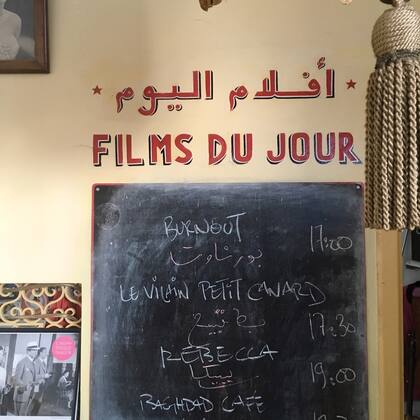 أفلام اليوم
FILMS DU JOUR
BURNOUT 17:00
بورناوت
LE VILAIN PETIT CANARD
17:30
REBECCA
19:00
BAGHDAD CAFÉ